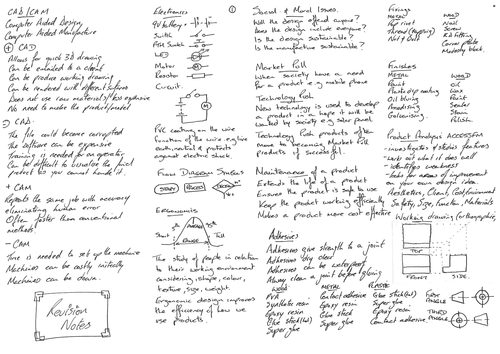 CAD/CAM
Computer Aided Design
Computer Aided Manufacture
+ CAD
Allows for quick 3D drawing
Can be emailed to a client
Can be produce working drawing
Can be rendered with different surfaces
Does not use raw materials/less expensive
No need to make the product
- CAD.
The file could become corrupted
The software can be expensive
Training is needed for an operator
Can be difficult to visualise the final
product as you cannot handle it.
+ CAM
Repeats the same job with accuracy
eliminating human error
Often faster than conventional
methods
- CAM
Time is needed to set up the machine
Machines can be costly initially
Machines can be down.
Revision
Notes
Electronics
9V battery
Switch
PTM Switch
LED
Motor
Resistor
Circuit
PVC contains the wire
function of the wire eg live
earth, neutral & protects
against electric shock.
Flow Diagram Symbols
START
PROCESS
DECISION
Ergonomics
Short
Average
Tall
The study of people in relation
to their working environment
considering, shape, colour,
texture, size, weight.
Ergonomic design improves
the efficiency of how we
use products.
1
Social & Moral Issues.
Will the design offend anyone?
Does the design include everyone?
Is the design sustainable?
Is the manufacture sustainable?
Market Pull
When society have a need
for a product e.g mobile phone
Technology Push
New technology is used to develop
a product in a hope it will be
wanted by society e.g solar panel
Technology Push products often
move to becoming Market Pull
products if successful.
Maintenance of a product
Extends the life of a product
Ensures the product is safe to use
Keep the product working efficiently
Makes a product more cost effective
Adhesives
Adhesives give strength to a joint
Adhesives dry clear
Adhesives can be waterproof
Always clean a joint before glueing
WOOD METAL PLASTIC
PVA Contact adhesive Glue stick (hot)
Synthetic resin Epoxy resin Super glue
Epoxy resin Glue stick Epoxy resin
Glue stick (hot) Super glue Contact adhesive
Super glue
Fixings
METAL WOOD
Pop rivet Nail
Thread (tapping) Screw
Nut & bolt KD Fitting
Corner plate
Modesty block.
Finishes
METAL WOOD
Paint Oil
Plastic dip coating Wax
Oil bluing Paint
Anodising Sealer
Galvanising. Stain
Polish
Product Analysis ACCESSFM
- investigates & studies features
- works out what it does well
- identifies weakness
- looks for areas of improvement
on your own design idea.
Aesthetics, Client, Cost, Environment
Safety, Size, Function, Materials
Working drawing (orthographic)
TOP
FRONT
SIDE.
FIRST
ANGLE
THIRD
ANGLE